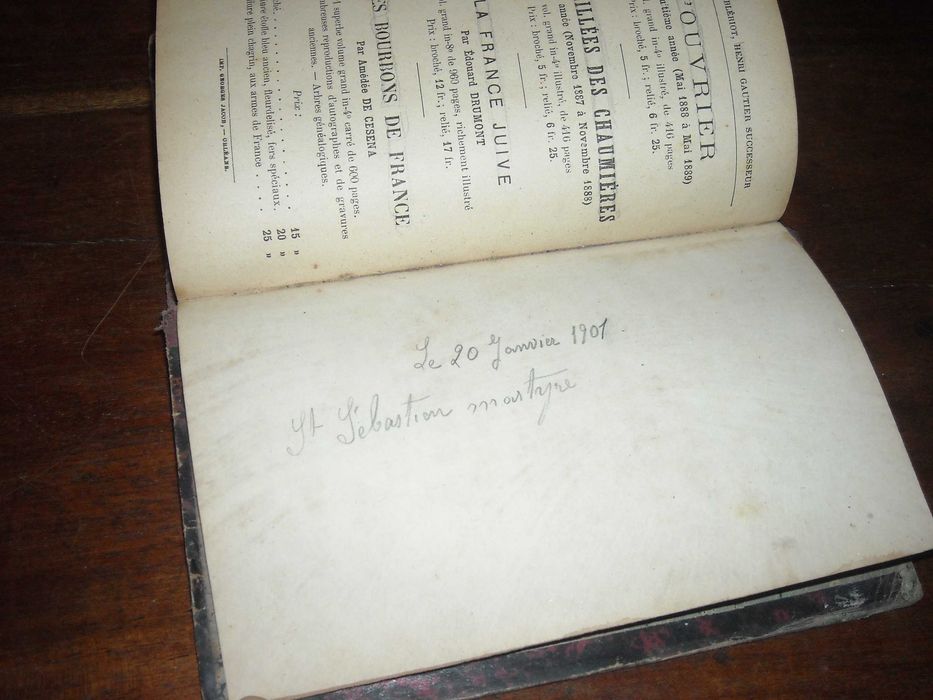 BLÉRIOT, HENRI GAUTIER SUCCESSEUR
L'OUVRIER
année (Mai 1888 à Mai 1889)
vol. grand in-4º illustré, de 416 pages
Prix : broché, 5 fr. ; relié, 6 fr. 25.
ILLÉES DES CHAUMIÈRES
année (Novembre 1887 à Novembre 1888)
vol. grand in-4º illustré, de 416 pages
Prix : broché, 5 fr. ; relié, 6 fr. 25.
LA FRANCE JUIVE
Par Édouard DRUMONT
vol. grand in-8º de 960 pages, richement illustré
Prix : broché, 12 fr. ; relié, 17 fr.
ES BOURBONS DE FRANCE
Par Amédée DE CESENA
superbe volume grand in-4º carré de 600 pages.
breuses reproductions d'autographes et de gravures
anciennes. — Arbres généalogiques.
Prix :
ché. . . . . . . . . . . . . 15 »
ure étoffe bleu ancien, fleurdelisé, fers spéciaux. 20 »
iure plein chagrin, aux armes de France . . . . . 25 »
IMP. GEORGES JACOB, — ORLÉANS.
Le 20 Janvier 1901
St Sébastien martyre